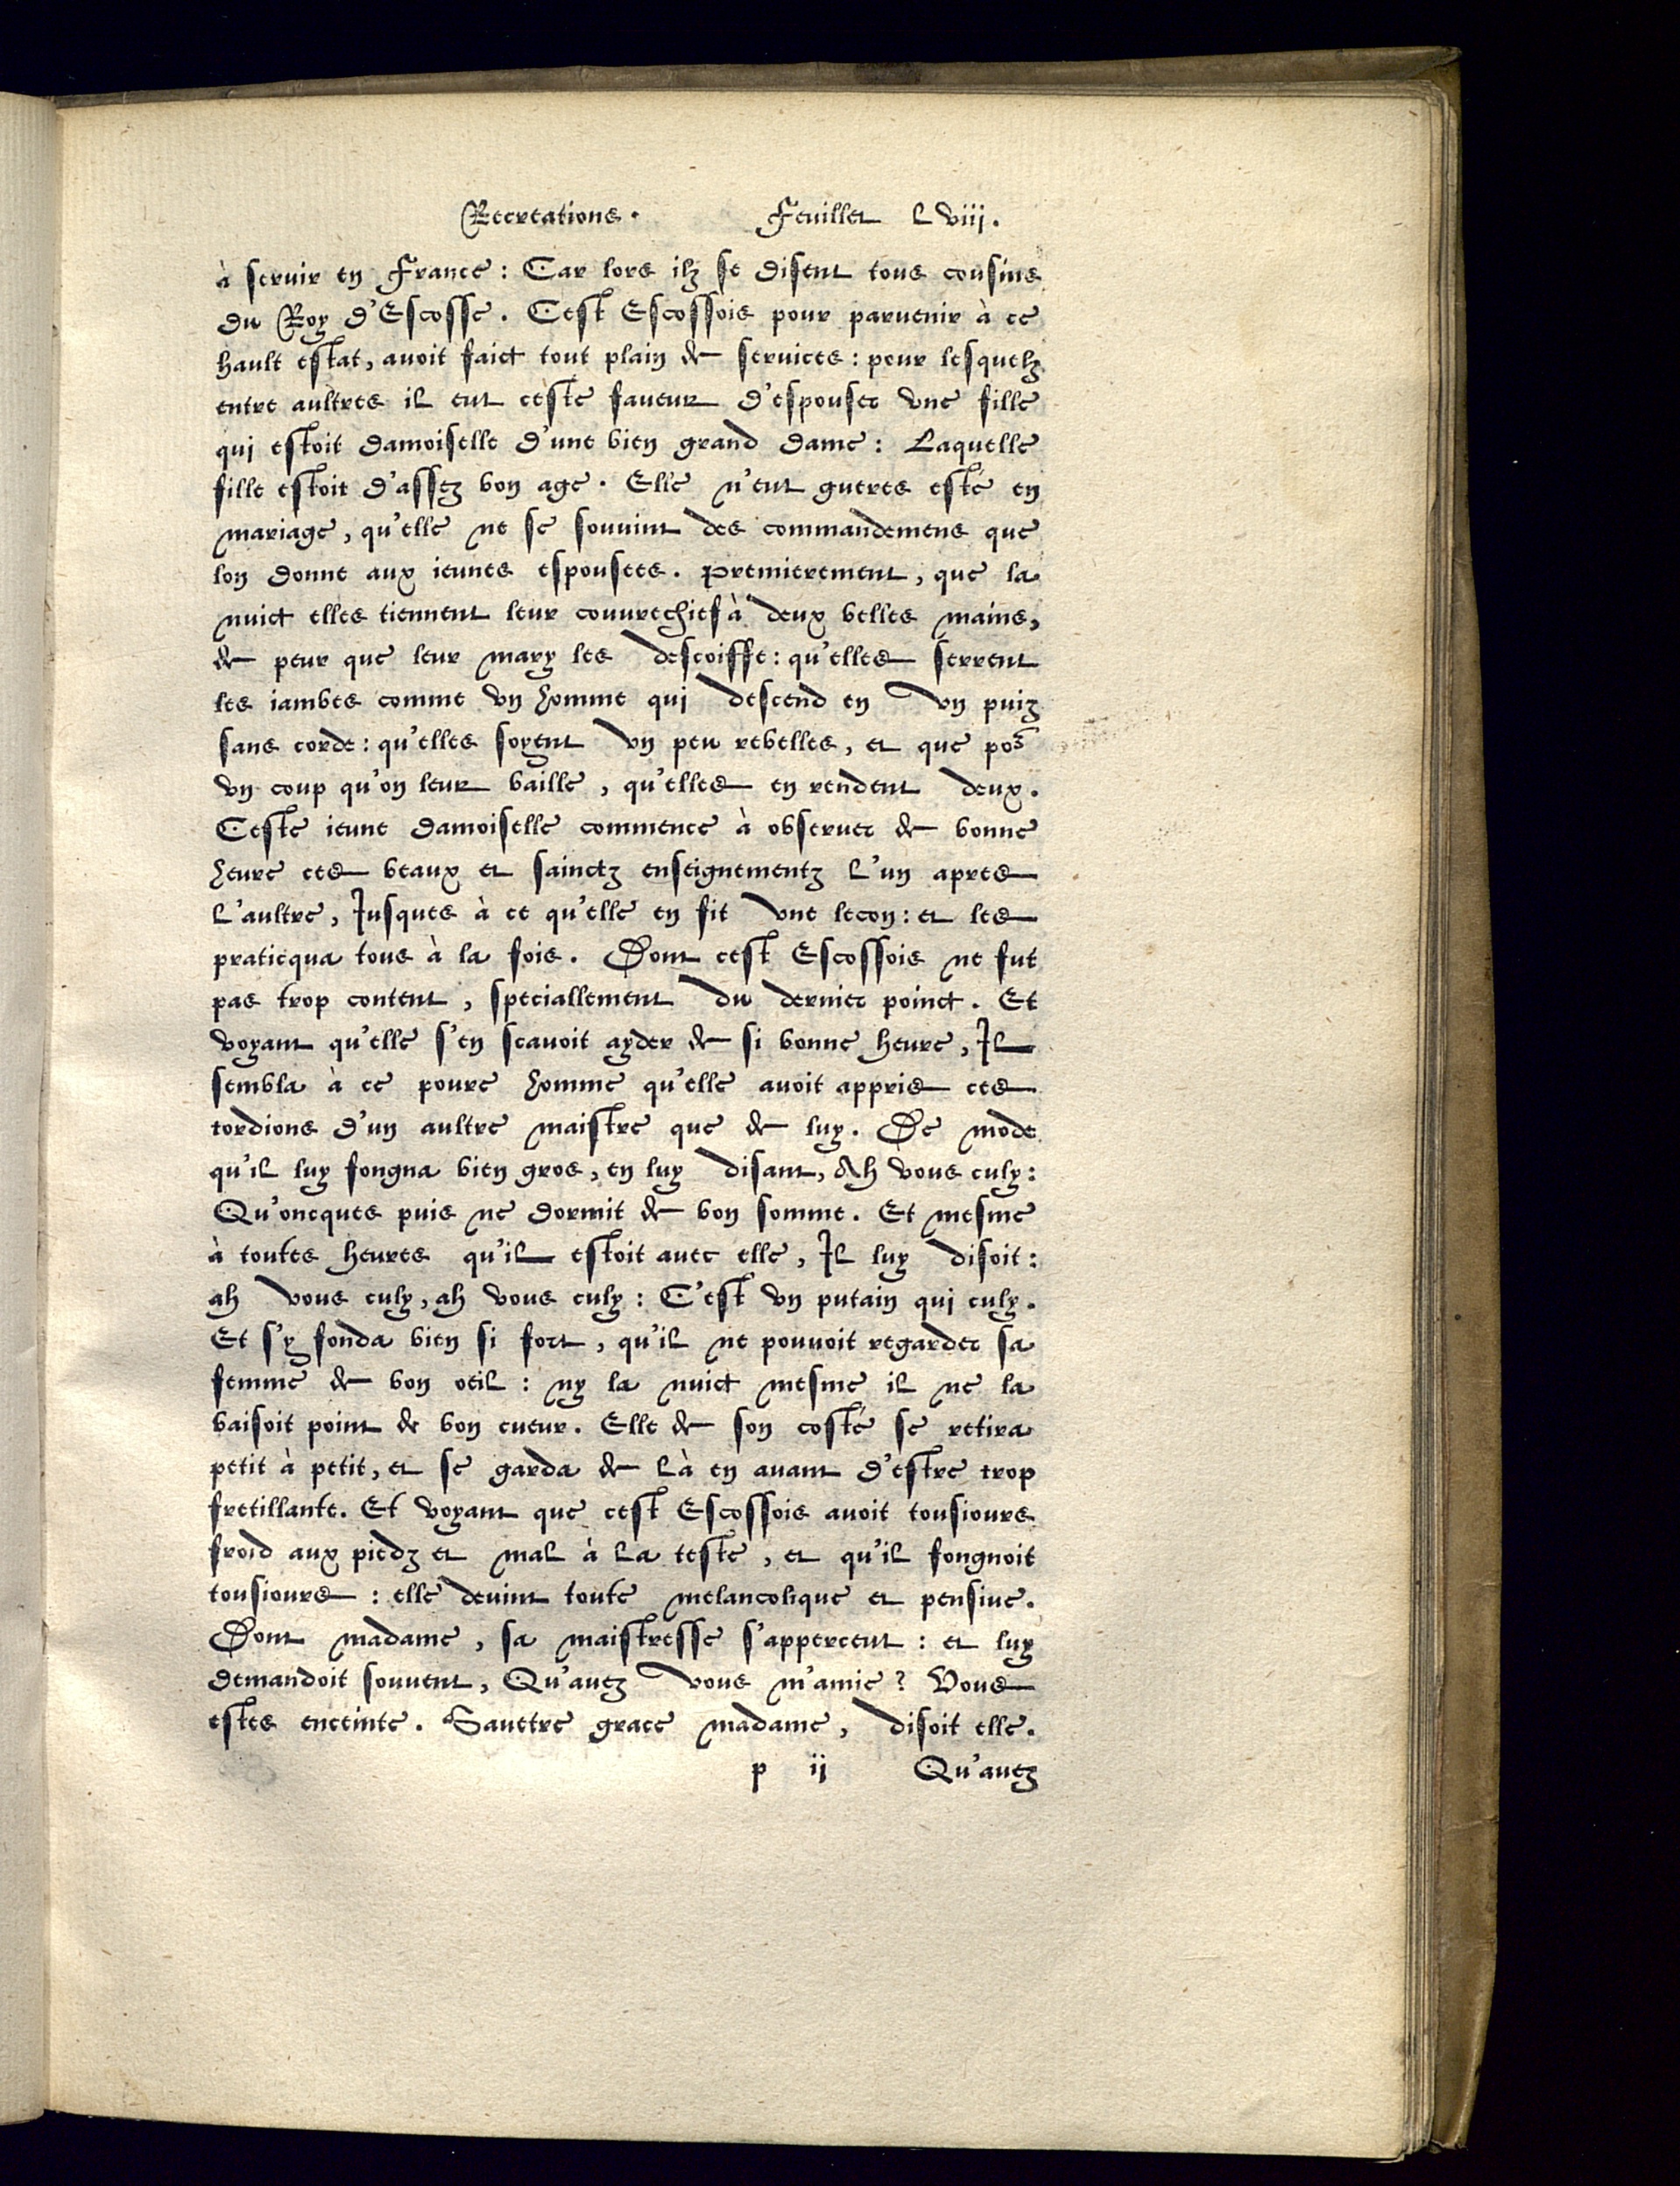 Recreations. Feuillet Lviij.
à seruir en France : Car lors ilz se disent tous cousins
du Roy d'Escosse. Cest Escossois pour paruenir à ce
hault estat, auoit faict tout plain de seruices : pour lesquelz
entre aultres il eut ceste faueur d'espouser vne fille
qui estoit damoiselle d'une bien grand dame : Laquelle
fille estoit d'assez bon age. Elle n'eut gueres esté en
mariage, qu'elle ne se souuint des commandemens que
lon donne aux ieunes espousees. Premierement, que la
nuict elles tiennent leur couurechief à deux belles mains,
de peur que leur mary les descoiffe : qu'elles serrent
les iambes comme vn homme qui descend en vn puiz
sans corde : qu'elles soyent vn peu rebelles, et que po᷑
vn coup qu'on leur baille, qu'elles en rendent deux.
Ceste ieune damoiselle commence à obseruer de bonne
heure ces beaux et sainctz enseignementz l'un apres
l'aultre, Iusques à ce qu'elle en fit vne lecon : et les
praticqua tous à la fois. Dont cest Escossois ne fut
pas trop content, speciallement du dernier poinct. Et
voyant qu'elle s'en scauoit ayder de si bonne heure, Il
sembla à ce poure homme qu'elle auoit appris ces
tordions d'un aultre maistre que de luy. De mode
qu'il luy fongna bien gros, en luy disant, Ah vous culy :
Qu'oncques puis ne dormit de bon somme. Et mesme
à toutes heures qu'il estoit auec elle, Il luy disoit :
ah vous culy, ah vous culy : C'est vn putain qui culy.
Et s'y fonda bien si fort, qu'il ne pouuoit regarder sa
femme de bon oeil : ny la nuict mesme il ne la
baisoit point de bon cueur. Elle de son costé se retira
petit à petit, et se garda de là en auant d'estre trop
fretillante. Et voyant que cest Escossois auoit tousiours
froid aux piedz et mal à la teste, et qu'il fongnoit
tousiours : elle deuint toute melancolique et pensiue.
Dont madame, sa maistresse s'apperceut : et luy
demandoit souuent, Qu'auez vous m'amie ? Vous
estes enceinte. Sauetre grace madame, disoit elle.
p ij Qu'auez